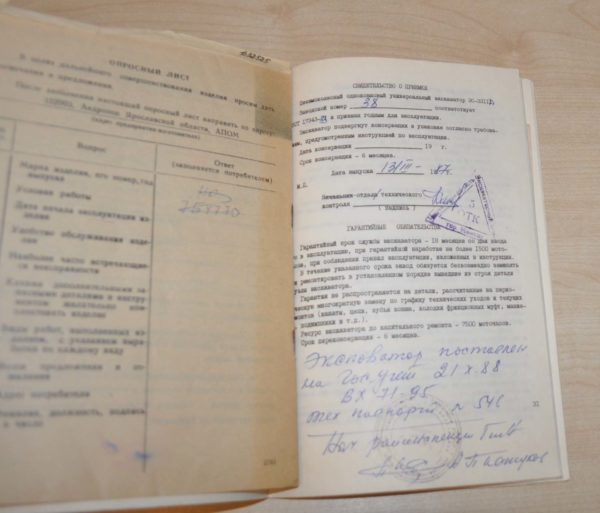 ОПРОСНЫЙ ЛИСТ
В целях дальнейшего совершенствования изделия просим дать
замечания и предложения.
После заполнения настоящий опросный лист направить по адресу:
Андропов Ярославской области, АПОМ
Вопрос
Ответ
(заполняется потребителем)
Марка изделия, его номер, год
выпуска
Условия работы
Дата начала эксплуатации из-
делия
Удобство обслуживания изде-
лия
Наиболее часто встречающи-
еся неисправности
Какими дополнительными за-
пасными деталями и инстру-
ментом желательно ком-
плектовать изделие
Виды работ, выполняемых из-
делием, с указанием выра-
ботки по каждому виду
Адрес потребителя
СВИДЕТЕЛЬСТВО О ПРИЕМКЕ
Пневмоколесный одноковшовый универсальный экскаватор
Заводской номер 38 соответствует
и признан годным для эксплуатации.
Экскаватор подвергнут консервации и упаковке согласно требова-
ниям, предусмотренным инструкцией по эксплуатации.
Дата консервации 19 г.
Срок консервации - 6 месяцев.
Дата выпуска 13/III- 1987г.
М.П.
Начальник отдела технического
контроля
( подпись )
5
ОТК
ГАРАНТИЙНЫЕ ОБЯЗАТЕЛЬСТВА
Гарантийный срок службы экскаватора - 18 месяцев со дня ввода
его в эксплуатацию, при гарантийной наработке не более 1500 мото-
часов, при соблюдении правил эксплуатации, изложенных в инструкции.
В течение указанного срока завод обязуется безвозмездно заменять
или ремонтировать в установленном порядке вышедшие из строя детали
и узлы экскаватора.
Гарантия не распространяется на детали, рассчитанные на перио-
дическую многократную замену по графику технических уходов и текущих
ремонтов (канаты, цепи, зубья ковша, колодки фрикционных муфт, манже-
ты, подшипники и т.д.).
Ресурс экскаватора до капитального ремонта - 7500 моточасов.
Срок переконсервации - 6 месяцев.
Экскаватор поставлен
на Гос. учет 21 X. 88
ВХ 71-95
тех паспорт № 546
31
Нач